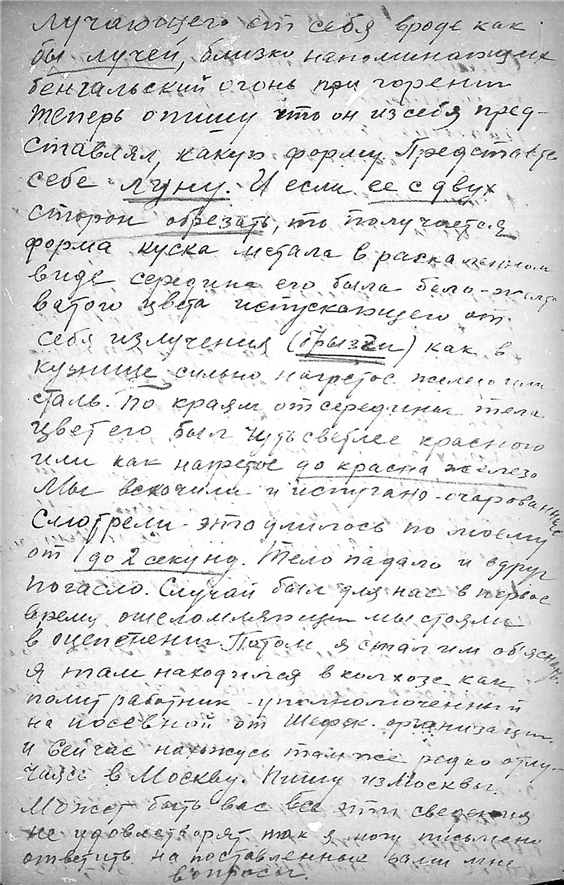 лучающего от себя вроде как
бы лучей, близко напоминающих
бенгальский огонь при горении
Теперь опишу что он из себя пред-
ставлял, какую форму. Представьте
себе луну. И если ее с двух
сторон обрезать, то получается
форма куска метала в раскаленном
виде середина его была бело-желто
ватого цвета испускающего от
себя излучения (брызги) как в
кузнице сильно нагретое железо или
сталь. По краям от середины тела
цвет его был чуть светлее красного
или как нагретое до красна железо
Мы вскочили и испугано-очарованные
смотрели это длилось по моему
от 1 до 2 секунд. Тело падало и вдруг
погасло. Случай был для нас в первое
время ошеломляющим мы стояли
в оцепенении. Потом я стал им объяснять.
я там находился в колхозе как
политработник уполномоченный
на посевной от Шефск. организации.
и сейчас нахожусь там же редко отлу-
чаясь в Москву. Пишу из Москвы.
Может быть вас все эти сведения
не удовлетворят так я могу письмено
ответить на поставленные вами мне
вопросы.